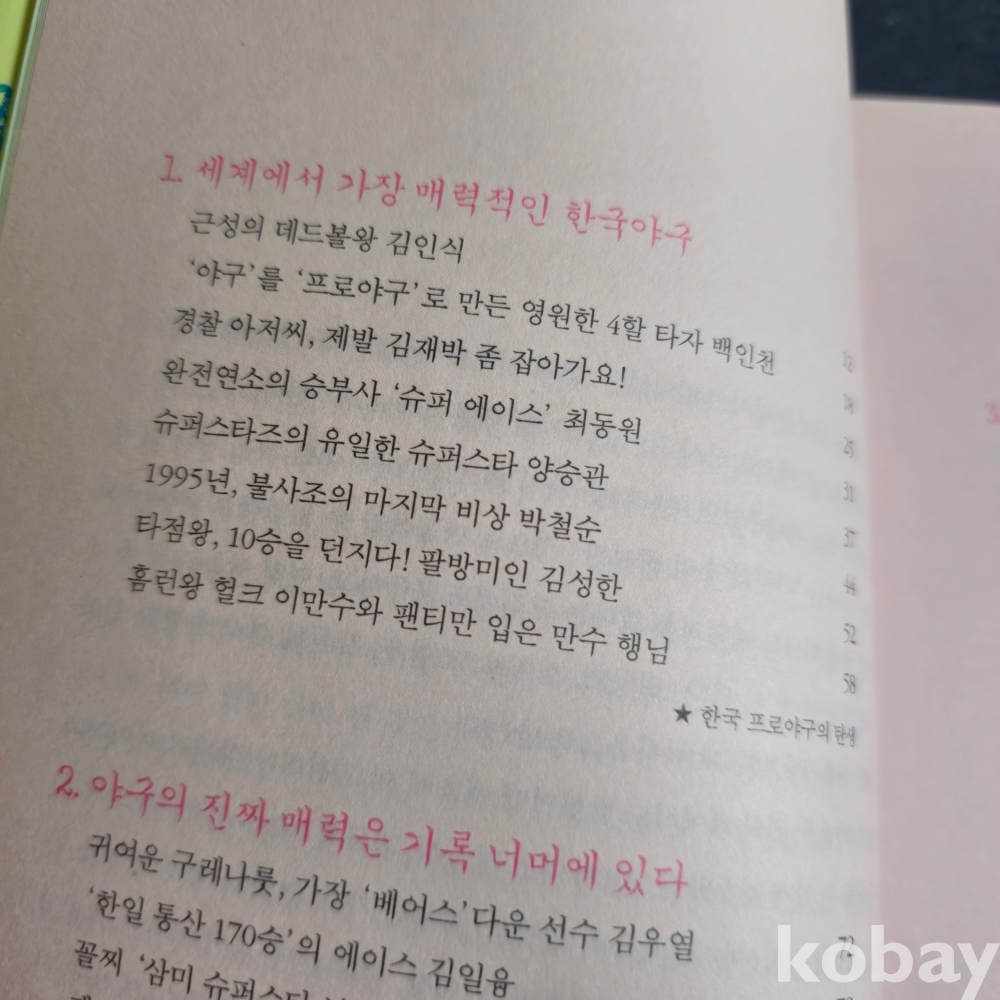 1. 세계에서 가장 매력적인 한국야구
근성의 데드볼왕 김인식 12
'야구'를 '프로야구'로 만든 영원한 4할 타자 백인천 18
경찰 아저씨, 제발 김재박 좀 잡아가요! 25
완전연소의 승부사 '슈퍼 에이스' 최동원 31
슈퍼스타즈의 유일한 슈퍼스타 양승관 37
1995년, 불사조의 마지막 비상 박철순 44
타점왕, 10승을 던지다! 팔방미인 김성한 52
홈런왕 헐크 이만수와 팬티만 입은 만수 행님 58
★ 한국 프로야구의 탄생
2. 야구의 진짜 매력은 기록 너머에 있다
귀여운 구레나룻, 가장 '베어스'다운 선수 김우열 72
'한일 통산 170승'의 에이스 김일융
꼴찌 '삼미 슈퍼스타
3
kobay